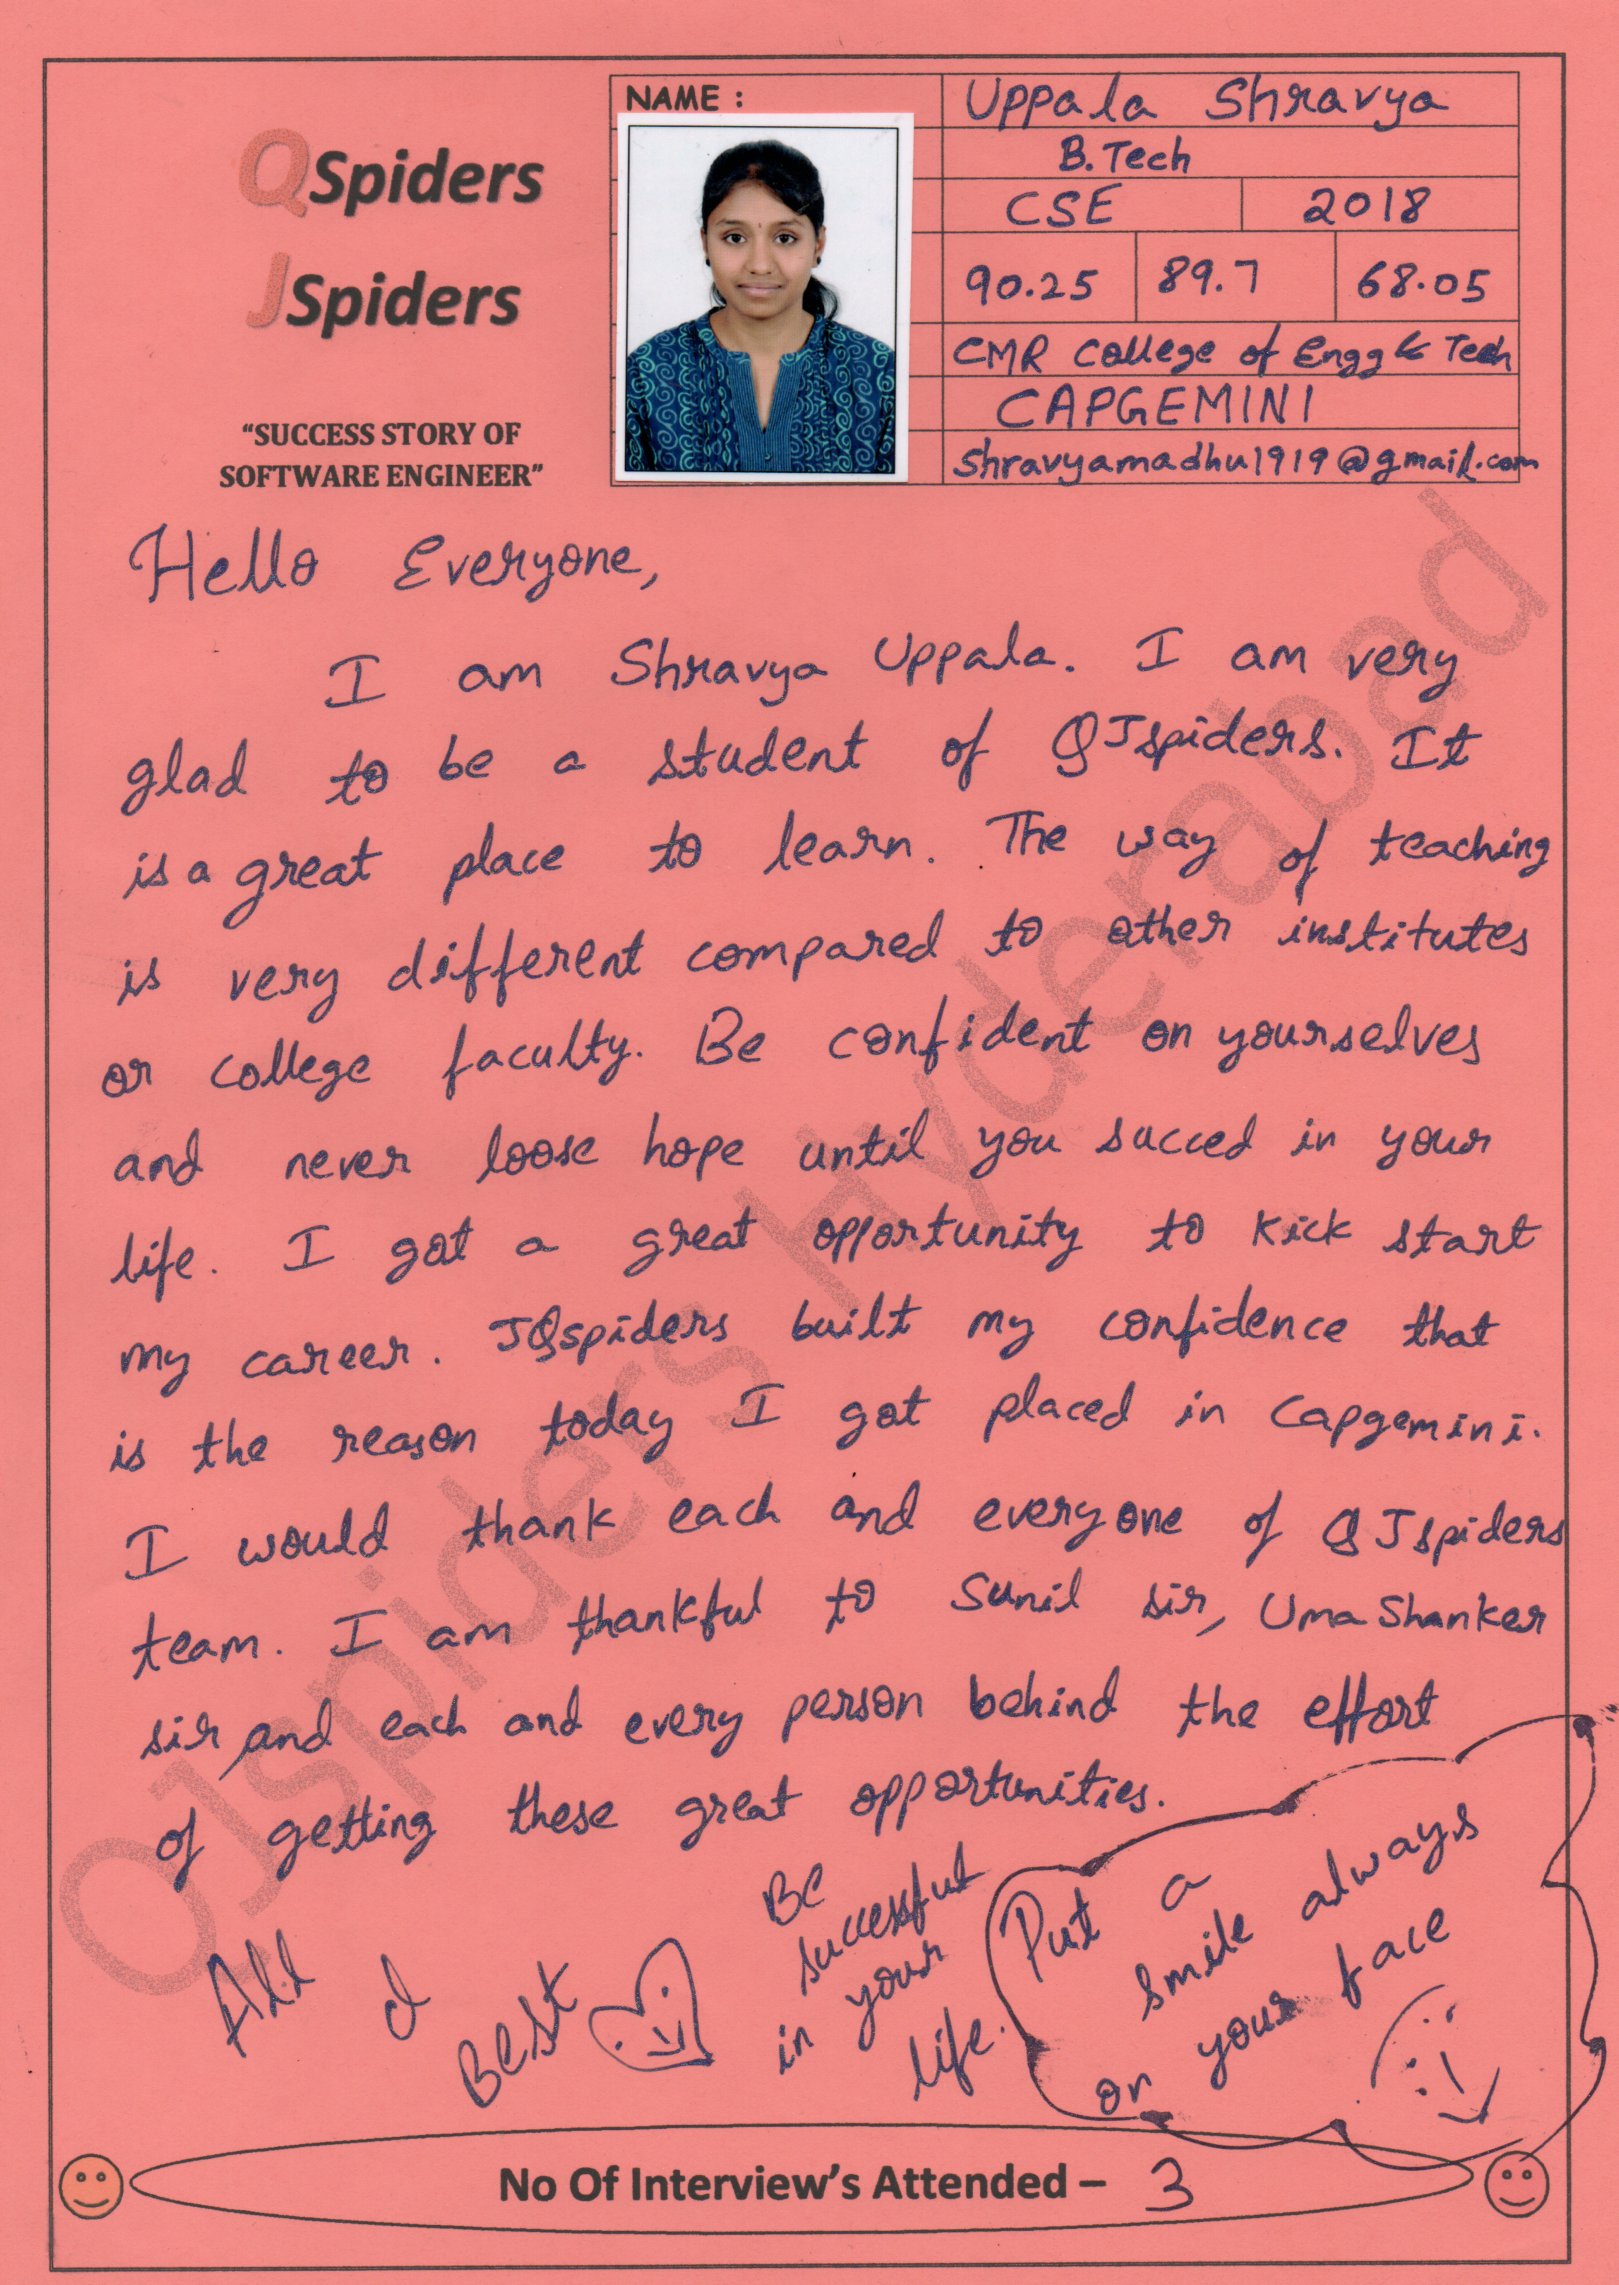 QSpiders
JSpiders
"SUCCESS STORY OF
SOFTWARE ENGINEER"
NAME :
Uppala Shravya
B.Tech
CSE 2018
90.25 89.7 68.05
CMR College of Engg & Tech
CAPGEMINI
shravyamadhu1919@gmail.com
Hello Everyone,
I am Shravya Uppala. I am very
glad to be a student of QJspiders. It
is a great place to learn. The way of teaching
is very different compared to other institutes
or college faculty. Be confident on yourselves
and never loose hope until you succed in your
life. I got a great opportunity to kick start
my career. JQspiders built my confidence that
is the reason today I got placed in Capgemini.
I would thank each and everyone of QJspiders
team. I am thankful to Sunil sir, Uma Shanker
sir, and each and every person behind the effort
of getting these great opportunities.
All d Best
Be
successful
in your
life.
Put a
smile always
on your face
No Of Interview's Attended – 3
QJspiders Hyderabad